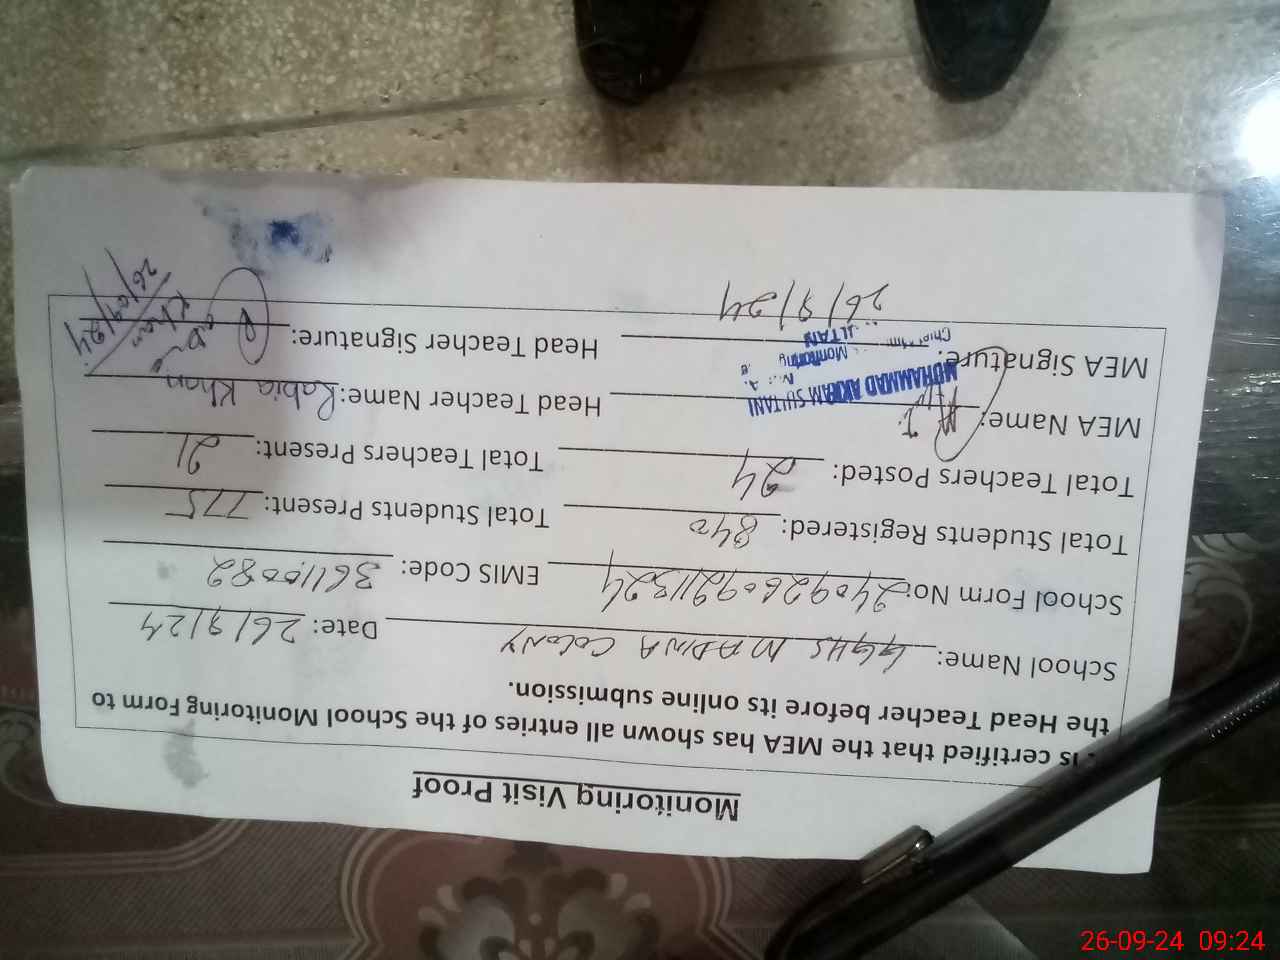 Monitoring Visit Proof
is certified that the MEA has shown all entries of the School Monitoring Form to
the Head Teacher before its online submission.
School Name: GGHS MADINA COLONY Date: 26/9/24
School Form No: 24092609211324 EMIS Code: 36110082
Total Students Registered: 840 Total Students Present: 775
Total Teachers Posted: 24 Total Teachers Present: 21
MEA Name: Head Teacher Name: Rabia Khan
MUHAMMAD AKRAM SULTANI
Monitoring
MEA Signature: Head Teacher Signature:
26/9/24
Khan
26/09/24
26-09-24 09:24